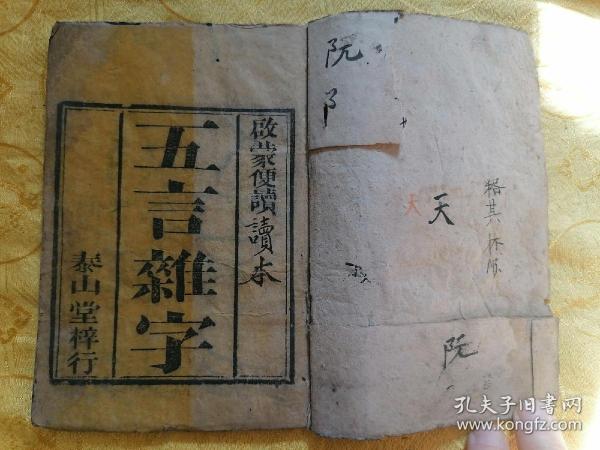 啟蒙便讀讀本
五言雜字
泰山堂梓行
阮
阝
天
天
阮
孔夫子旧书网
www.kongfz.com